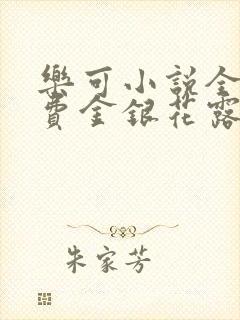 樂可小說全
費金銀花露
朱家芳